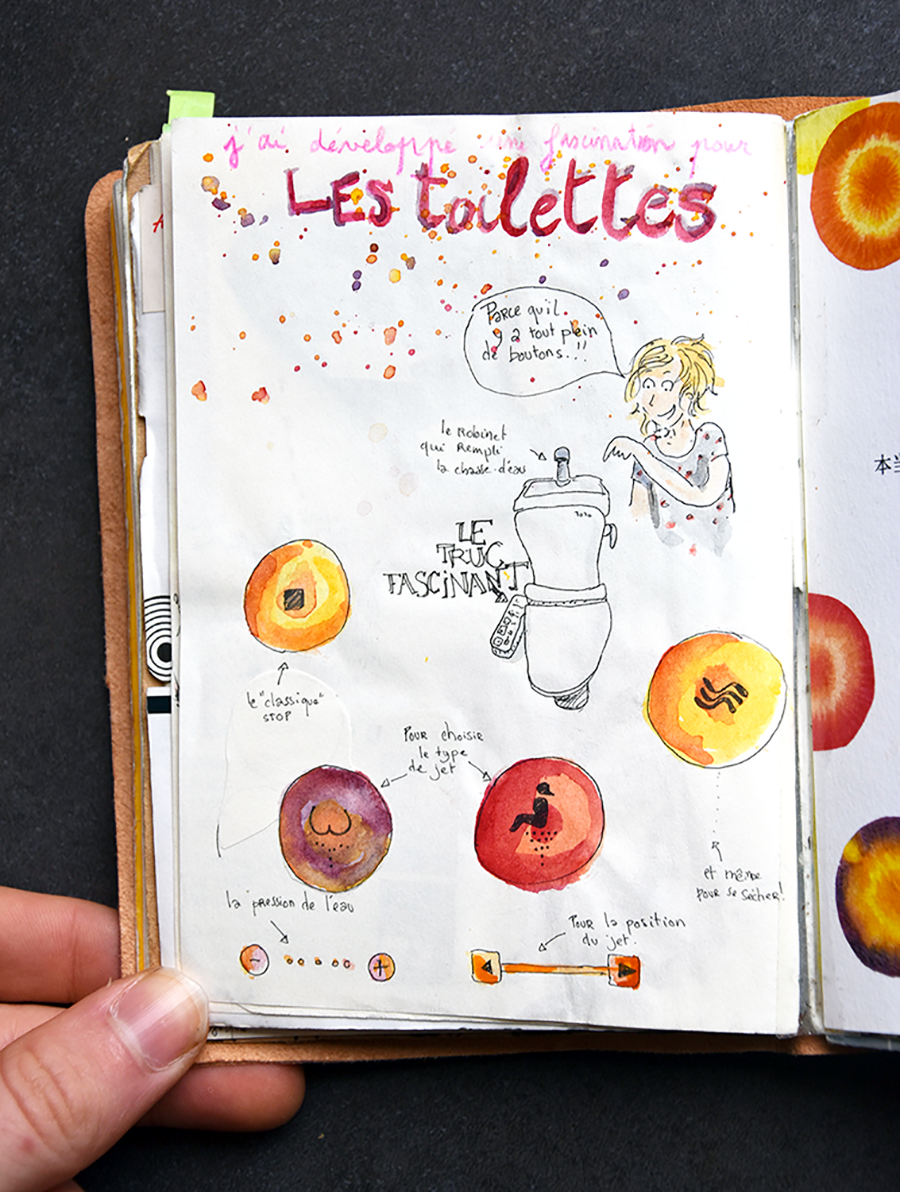 j'ai développé une fascination pour
LES toilettes
Parce qu'il
y a tout plein
de boutons...!!
le Robinet
qui Rempli
la chasse-d'eau
TOTO
LE
TRUC
FASCINANT
le "classique"
STOP
Pour choisir
le type
de jet
et même
pour se sécher!
la pression de l'eau
- +
Pour la position
du jet.
本当